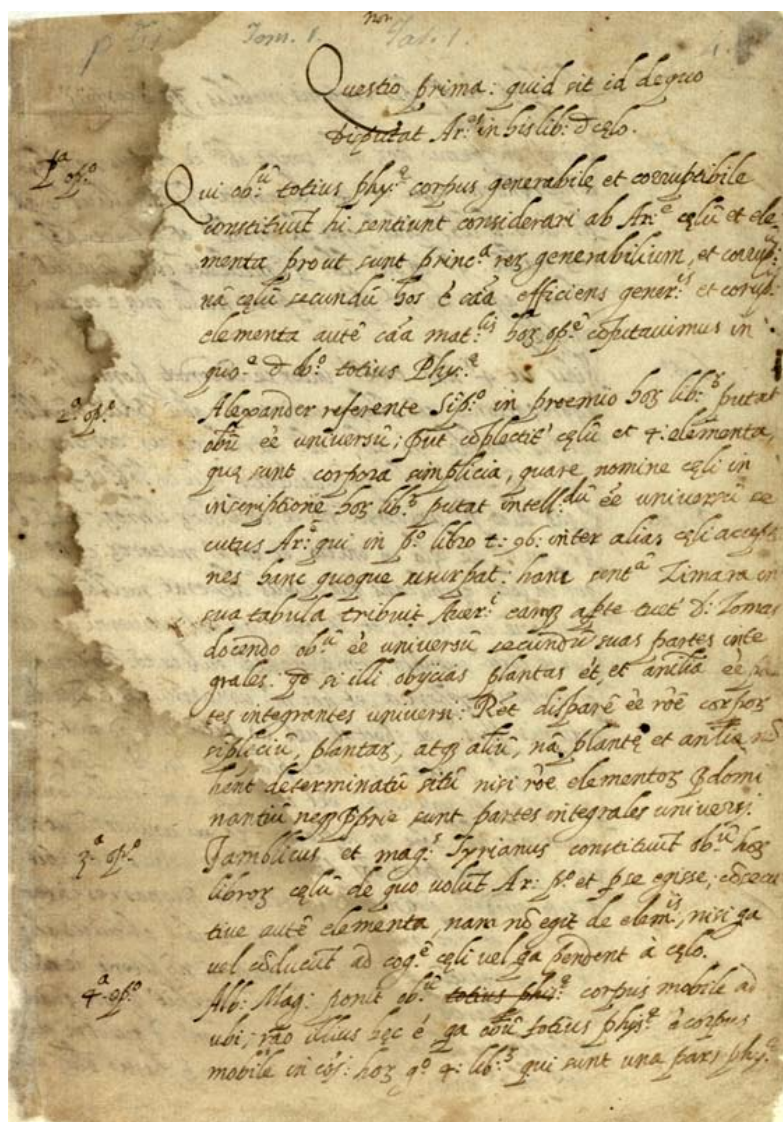 Tom. 1.
Questio prima: quid sit id de quo
Disputat Ar:os in his lib: d cęlo.
1a op:o
Qui ob:ū totius phy:ę corpus generabile et corruptibile
constituūt hi sentiunt considerari ab Ar:e cęlū et ele-
menta prout sunt princ:a reꝝ generabilium, et corrup:
nā cęlū secundū hos ē cāa efficiens gener:is et corup:
elementa autē cāa mat:lis hoꝝ op:ē in
quo:ę d ob:o totius Phy:ę
2a op:o
Alexander referente Sip:o in preemio hoꝝ lib:s putat
obū ēe universū; put cōplectit' cęlū et 4: elementa,
quę sunt corpora simplicia, quare nomine cęli in
inscriptione hoꝝ lib:s putat intell:dū ēe universū se
cutus Ar: qui in p:o libro t: 96: inter alias cęli accep
nes hanc quoque usurpat: hanc sent:ā Zimara in
sua tabula tribuit Aver:i eamqꝫ apte tuet' D: Tomas
docendo ob:ū ēe universū secundū suas partes inte
grales. si illi obijcias plantas ēt, et anīlia ēe
tes integrantes universi: Rēt disparē ēe rōē corpoꝝ
sīpliciū, plantaꝝ, atqꝫ alīū, nā plantę et anīlia
hent determinatū sitū nisi rōē elementoꝝ ꝑdomi
nantiū neqꝫ ꝓprie sunt partes integrales universi.
3a op:o
Jamblicus et mag:s Tyrianus constituūt ob:ū hoꝝ
libroꝝ cęlū de quo volūt Ar: p:o et ꝑ se egisse, cōsecu
tive autē elementa, nam nō egit de elem:is, nisi qa
vel cōducūt ad cog:ē cęli vel qa pendent à cęlo.
4a op:o
Alb: Mag: ponit ob:ū totius phis:ę corpus mobile ad
ubi; rāo illius hęc ē qa obū totius phys:ę ē corpus
mobile in cōi: hoꝝ 4: lib:s qui sunt una pars phy:ę